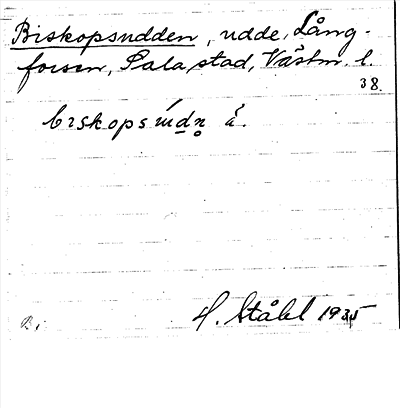 Biskopsudden, udde, Lång-
forsen, Sala stad, Västm. l.
38.
biskopsudn̥ å.
B.
H. Ståhl 1935